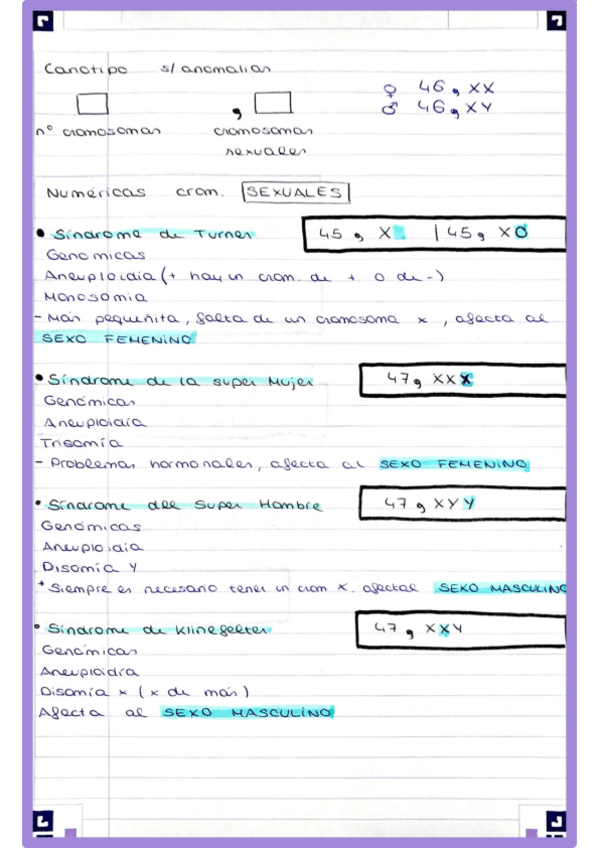 Cariotipo s/ anomalías
♀ 46, XX
, ♂ 46, XY
nº cromosomas cromosomas
sexuales
Numéricas crom. SEXUALES
• Síndrome de Turner 45, X | 45, XO
Genómicas
Aneuploidía (+ hay un crom. de + o de -)
Monosomía
- Más pequeñita, falta de un cromosoma x, afecta al
SEXO FEMENINO
• Síndrome de la super Mujer 47, XXX
Genómicas
Aneuploidía
Trisomía
- Problemas hormonales, afecta al SEXO FEMENINO
• Síndrome del Super Hombre 47, XYY
Genómicas
Aneuploidía
Disomía Y
* Siempre es necesario tener un crom X. afectal SEXO MASCULINO
• Síndrome de Klinefelter 47, XXY
Genómicas
Aneuploidía
Disomía x (x de más)
Afecta al SEXO MASCULINO